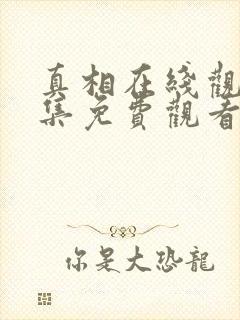 真相在綫觀
集免費觀看
你是大恐龍